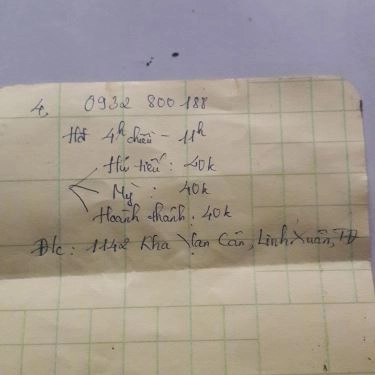 4. 0932 800 188
Hđ 4h chiều - 11h
Hủ tiếu : 40k
Mỳ : 40k
Hoành thánh : 40k
Đ/c : 1142 Kha Vạn Cân, Linh Xuân, TĐ